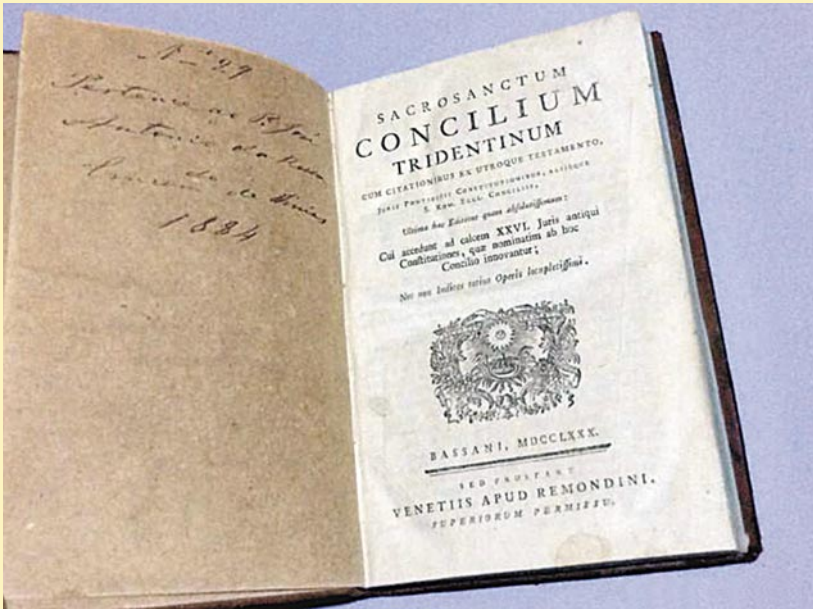 Nº 29
Pertence ao Pe. José
Antonio da
de
1884
SACROSANCTUM
CONCILIUM
TRIDENTINUM
CUM CITATIONIBUS EX UTROQUE TESTAMENTO,
JURIS PONTIFICII CONSTITUTIONIBUS, ALIISQUE
S. ROM. ECCL. CONCILIIS,
Ultima hac Editione quam absolutissimum:
Cui accedunt ad calcem XXVI. Juris antiqui
Constitutiones, quæ nominatim ab hoc
Concilio innovantur;
Nec non Indices totius Operis locupletissimi.
BASSANI, MDCCLXXX.
SED PROSTANT
VENETIIS APUD REMONDINI.
SUPERIORUM PERMISSU.